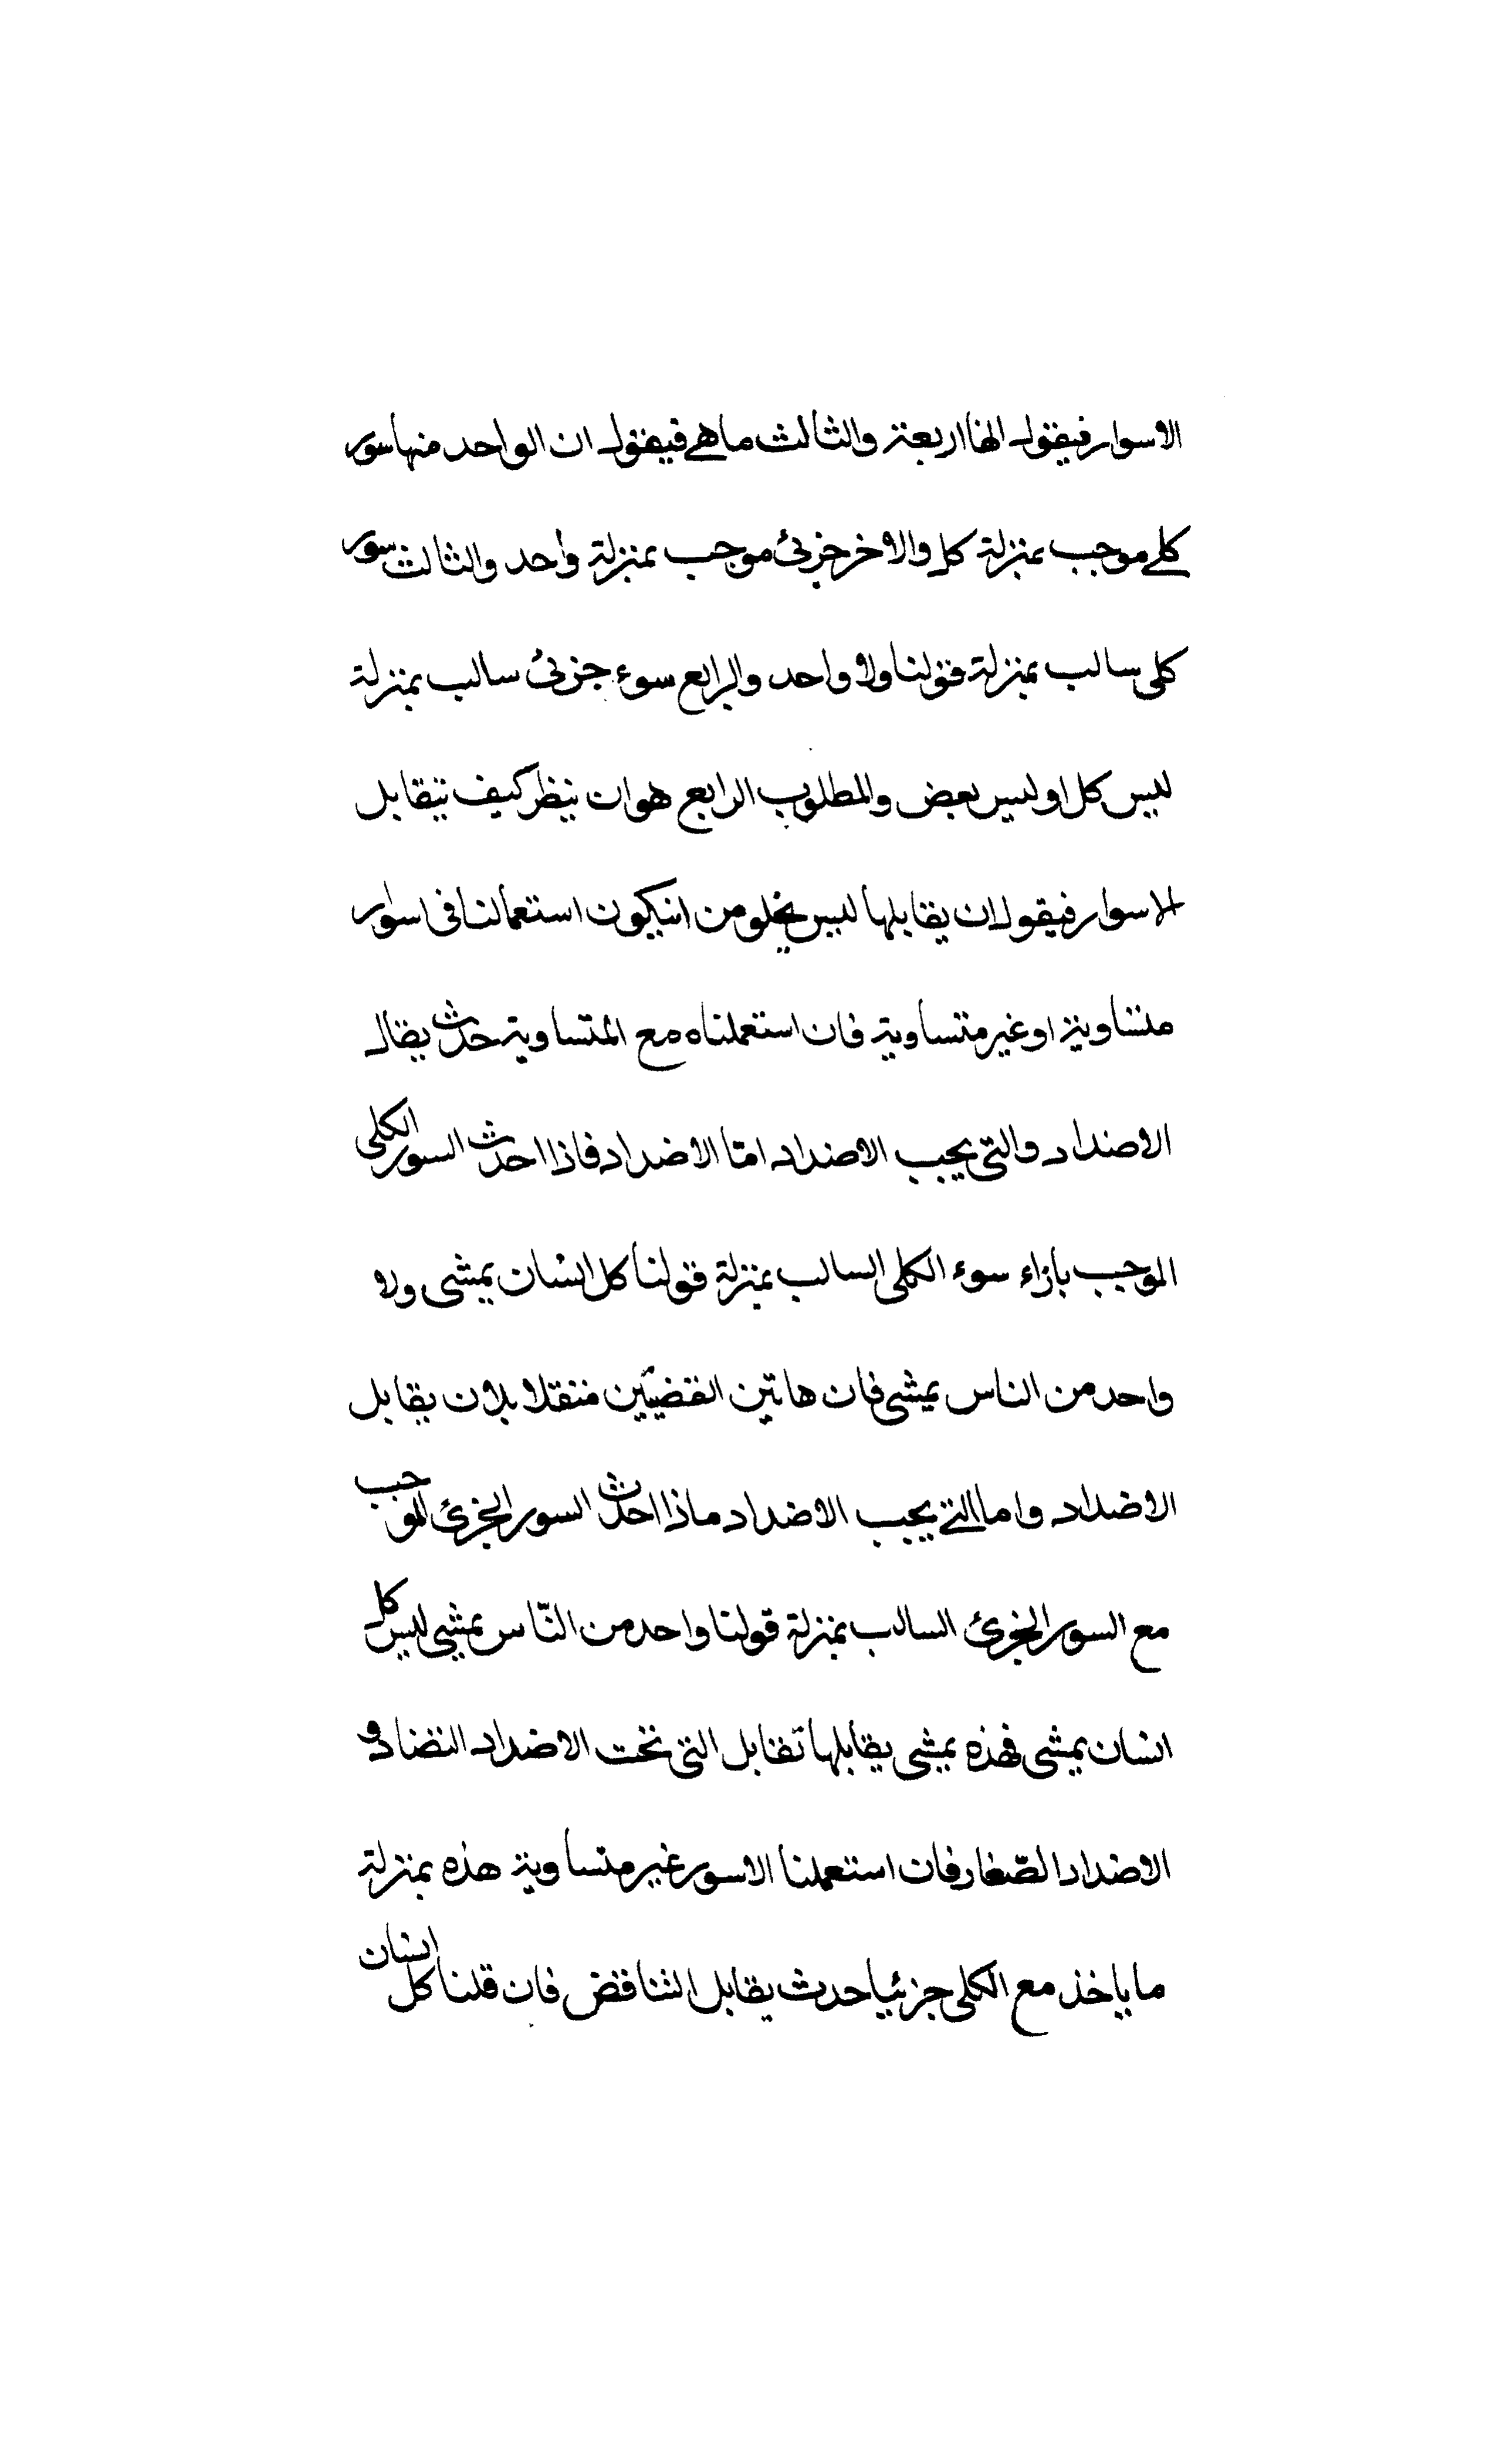 الاسوار فيقول انها اربعة والثالث ما هي فيقول ان الواحد منها سور
كلي موجب بمنزلة كل والاخر جزئ موجب بمنزلة واحد والثالث سور
كلى سالب بمنزلة قولنا ولا واحد والرابع سوء جزئ سالب بمنزلة
ليس كل او ليس بعض والمطلوب الرابع هو ان ينظر كيف يتقابل
الاسوار فيقول ان يقابلها ليس يخلو من انيكون استعمالنا فى اسوار
متساوية او غير متساوية فان استعملناه مع المتساوية حدث يقال
الاضداد والتى يجب الاضداد امّا الاضداد فاذا احدث السور الكلى
الموجب بازاء سوء الكلى السالب بمنزلة قولنا كل انسان يمشى ولا
واحد من الناس يمشى فان هاتين القضيّتين متقلابلان يقابل
الاضداد واما التى يجب الاضداد ماذا احدث السور الجزئ الموجب
مع السور الجزئ السالب بمنزلة قولنا واحد من النّاس يمشى ليس كل
انسان يمشى فهذه يمشى يقابلها تقابل التى تحت الاضداد التضاد و
الاضداد الصّغار فان استعملنا الاسور غير متساوية هذه بمنزلة
ما ياخذ مع الكلى جزئيا حدث يقابل التناقض فان قلنا كل انسان